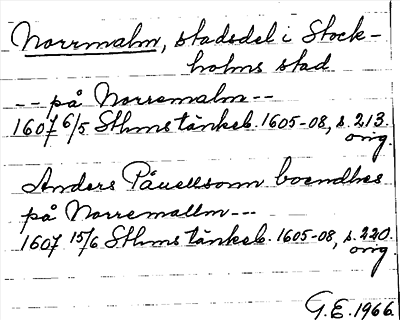 Norrmalm, stadsdel i Stock-
holms stad
-- på Norremalm --
1607 6/5 Sthms tänkeb. 1605-08, s. 213.
orig.
Anders Påuellsonn boendhes
på Norremallm ---
1607 15/6 Sthms tänkeb. 1605-08, s. 220.
orig.
G.E. 1966